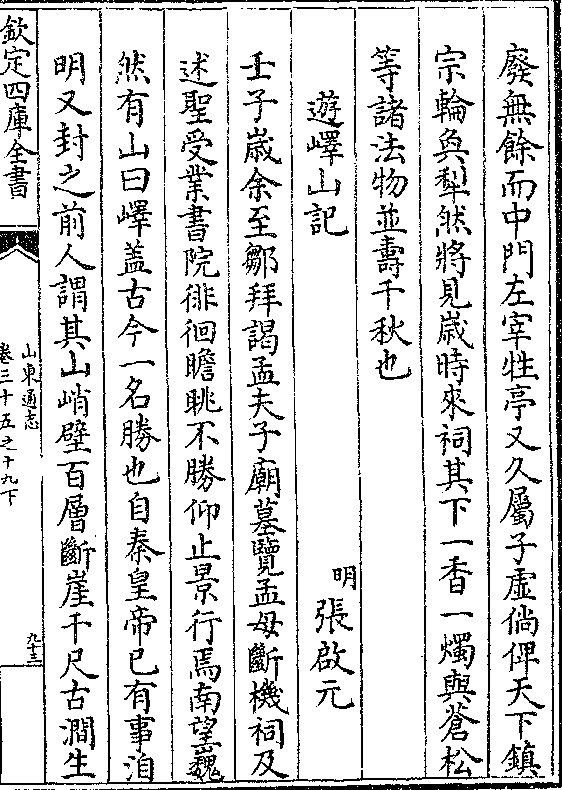 廢無餘而中門左宰牲亭又久屬子虛倘俾天下鎮
宗輪奐犁然將見歲時來祠其下一香一燭與蒼松
等諸法物並壽千秋也
遊嶧山記
明張啟元
壬子歲余至鄒拜謁孟夫子廟墓覽孟母斷機祠及
述聖受業書院徘徊瞻眺不勝仰止景行焉南望巍
然有山曰嶧蓋古今一名勝也自秦皇帝已有事洎
明又封之前人謂其山峭壁百層斷崖千尺古澗生
欽定四庫全書
山東通志
卷三十五之十九下
九十三